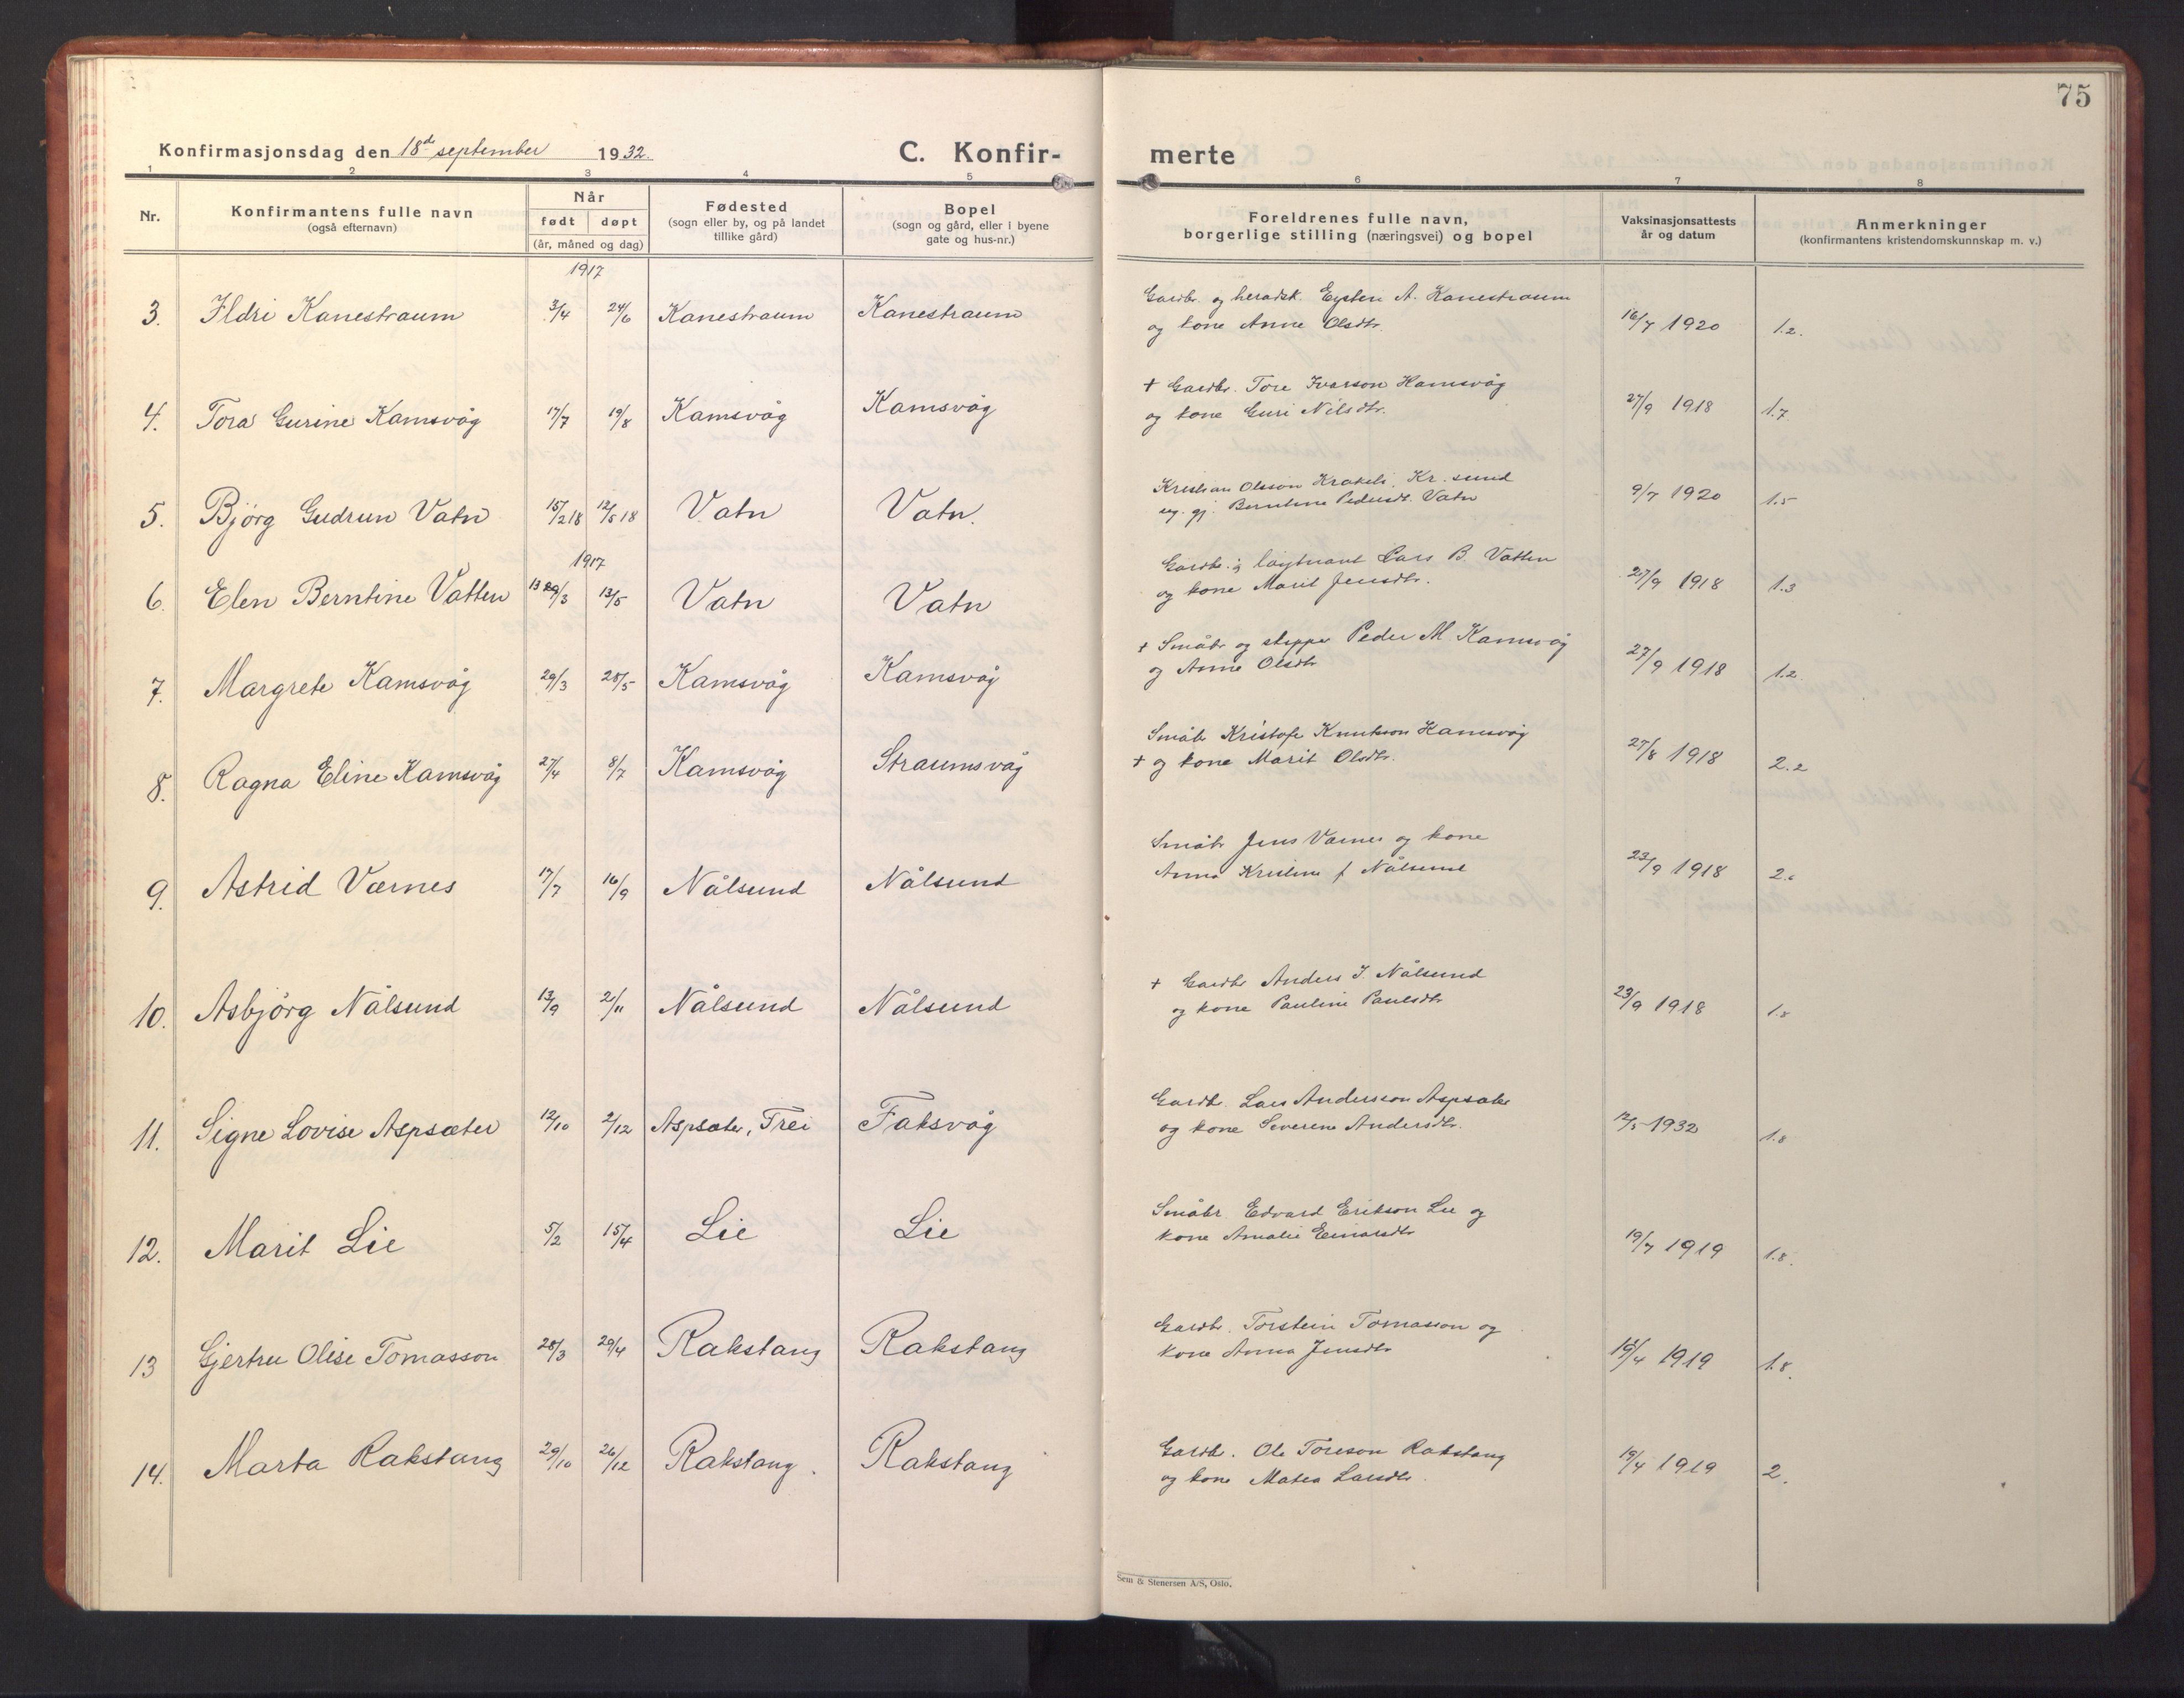 75
Konfirmasjonsdag den 18de september 1932.
C. Konfir-
merte
1 2 3 4 5 6 7 8
Nr.
Konfirmantens fulle navn
(også efternavn)
Når
født døpt
(år, måned og dag)
Fødested
(sogn eller by, og på landet
tillike gård)
Bopel
(sogn og gård, eller i byene
gate og hus-nr.)
Foreldrenes fulle navn,
borgerlige stilling (næringsvei) og bopel
Vaksinasjonsattests
år og datum
Anmerkninger
(konfirmantens kristendomskunnskap m. v.)
1917
3. Ildri Kanestraum 3/4 24/6 Kanestraum Kanestraum
Gardbr. og heradsk. Eystein A. Kanestraum
og kone Anne Olsdtr. 16/7 1920 1.2.
4. Tora Gurine Kamsvåg 17/7 19/8 Kamsvåg Kamsvåg
+ Gardbr. Tore Ivarson Kamsvåg
og kone Guri Nilsdtr. 27/9 1918 1.7
5. Bjørg Gudrun Vatn 15/2 18 12/5 18 Vatn Vatn.
Kristian Olsson Krakeli, Kr. sund
ug. gj. Berntine Pedersdt. Vatn 9/7 1920 1.5
1917
6. Elen Berntine Vatten 29/3 13/5 Vatn Vatn
Gardbr. og løytnant Lars B. Vatten
og kone Marit Jensdtr. 27/9 1918 1.3
7. Margrete Kamsvåg 29/3 28/5 Kamsvåg Kamsvåg
+ Småbr og skipper Peder M. Kamsvåg
og Anne Olsdtr 27/9 1918 1.2
8. Ragna Eline Kamsvåg 27/4 8/7 Kamsvåg Straumsvåg
Småbr Kristofe Knutson Kamsvåg
+ og kone Marit Olsdtr. 27/8 1918 2.2
9. Astrid Værnes 17/7 16/9 Nålsund Nålsund
Småbr Jens Værnes og kone
Anna Kristine f Nålsund 23/9 1918 2.
10. Asbjørg Nålsund 13/9 2/11 Nålsund Nålsund
+ Gardbr Anders J. Nålsund
og kone Pauline Paulsdtr 23/9 1918 1.8
11. Signe Lovise Aspsæter 12/10 2/12 Aspsæter, Trei Faksvåg
Gardbr. Lars Andersson Aspsæter
og kone Severine Andersdtr. 12/5 1932 1.8
12. Marit Lie 5/2 15/4 Lie Lie
Småbr. Edvard Erikson Lie og
kone Amalie Einarsdtr 19/7 1919 1.8.
13 Gjertru Olise Tomasson 28/3 29/4 Rakstang Rakstang
Gardbr. Torstein Tomasson og
kone Anna Jensdtr 15/4 1919 1.8.
14. Marta Rakstang 29/10 26/12 Rakstang. Rakstang
Gardbr. Ole Toreson Rakstang
og kone Matea Larsdtr. 19/4 1919 2.
Sem & Stenersen A/S, Oslo.